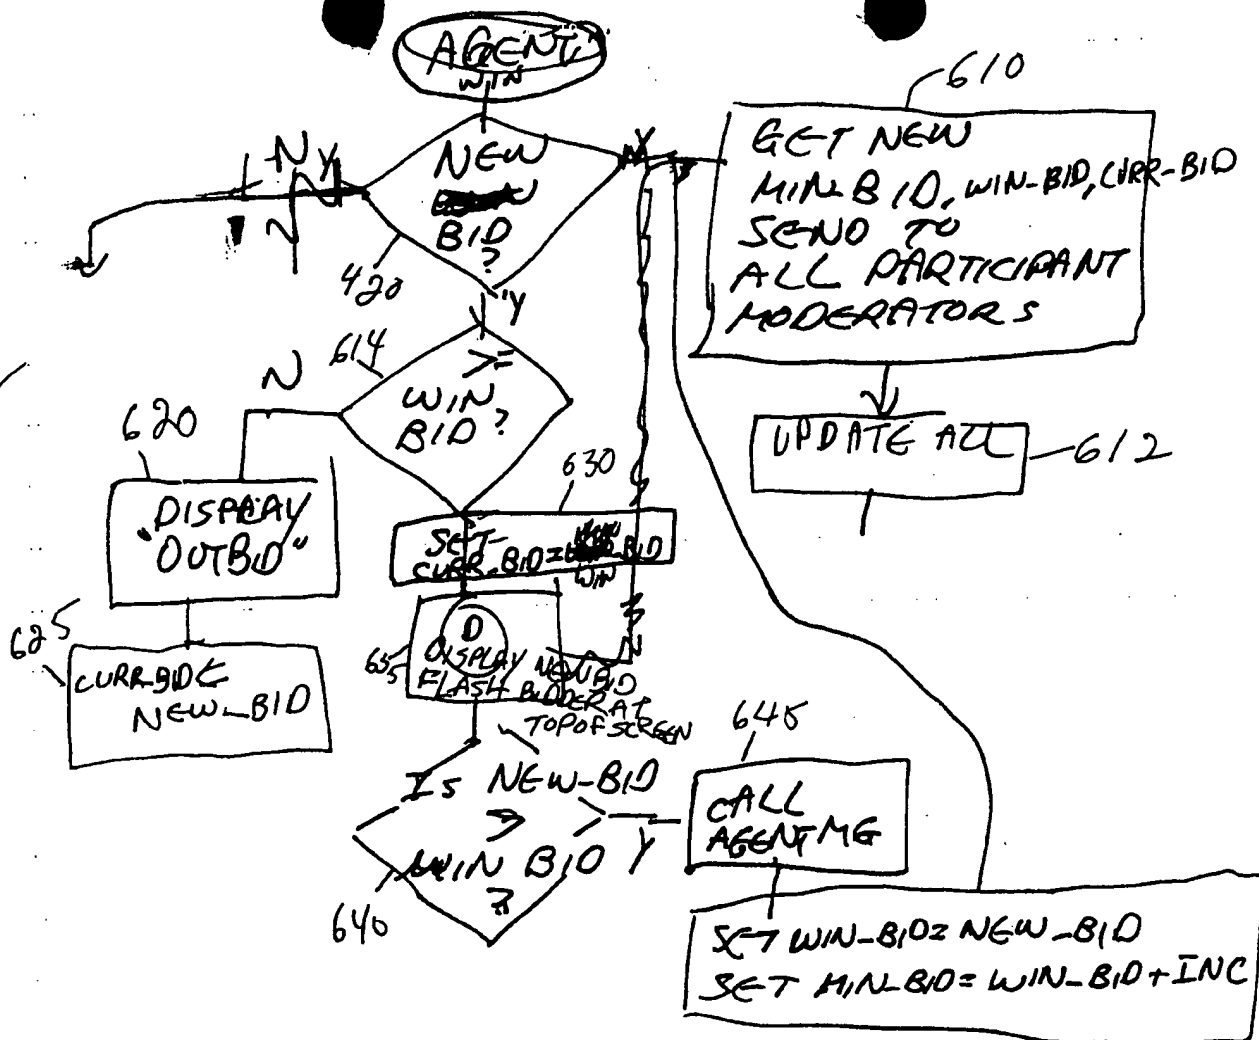 AGENT
WIN
610
GET NEW
MIN-BID, WIN-BID, CURR-BID
SEND TO
ALL PARTICIPANT
MODERATORS
N Y
N
NEW
BID
?
420
Y
614
>=
WIN
BID?
N
UPDATE ALL
612
620
"DISPLAY
OUTBID"
630
SET
CURR_BID = BID
WIN
625
CURR_BID <
NEW_BID
635
D
DISPLAY NEW BID
FLASH BIDDER AT
TOP OF SCREEN
IS NEW-BID
>
WIN BID
?
Y
640
645
CALL
AGENTMG
SET WIN_BID = NEW_BID
SET MIN_BID = WIN_BID + INC